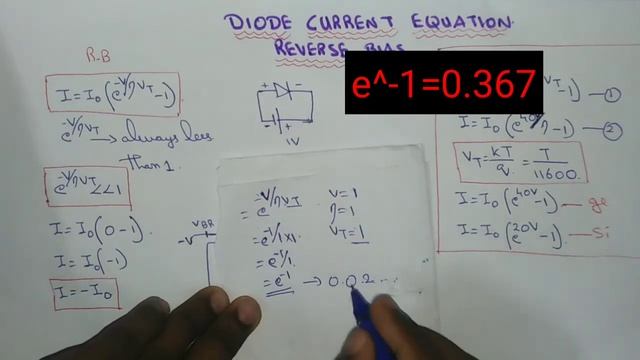 DIODE CURRENT EQUATION.
REVERSE BIAS
e^-1=0.367
R.B
I=I₀(e^-V/ηVT-1)
e^-V/ηVT → always less
than 1.
e^-V/ηVT<<1
I=I₀(0-1).
I=I₀(-1)
I=-I₀
+
-
- +
1V
VBR
-V
=e^-V/ηVT V=1
=e^-1/1x1. η=1
=e^-1/1. VT=1
=e^-1 → 0.0.2...
VT-1) — ①
I=I₀(e^40V/η-1) — ②
VT=kT/q=T/11600.
I=I₀(e^40V-1) — ge
I=I₀(e^20V-1) — Si